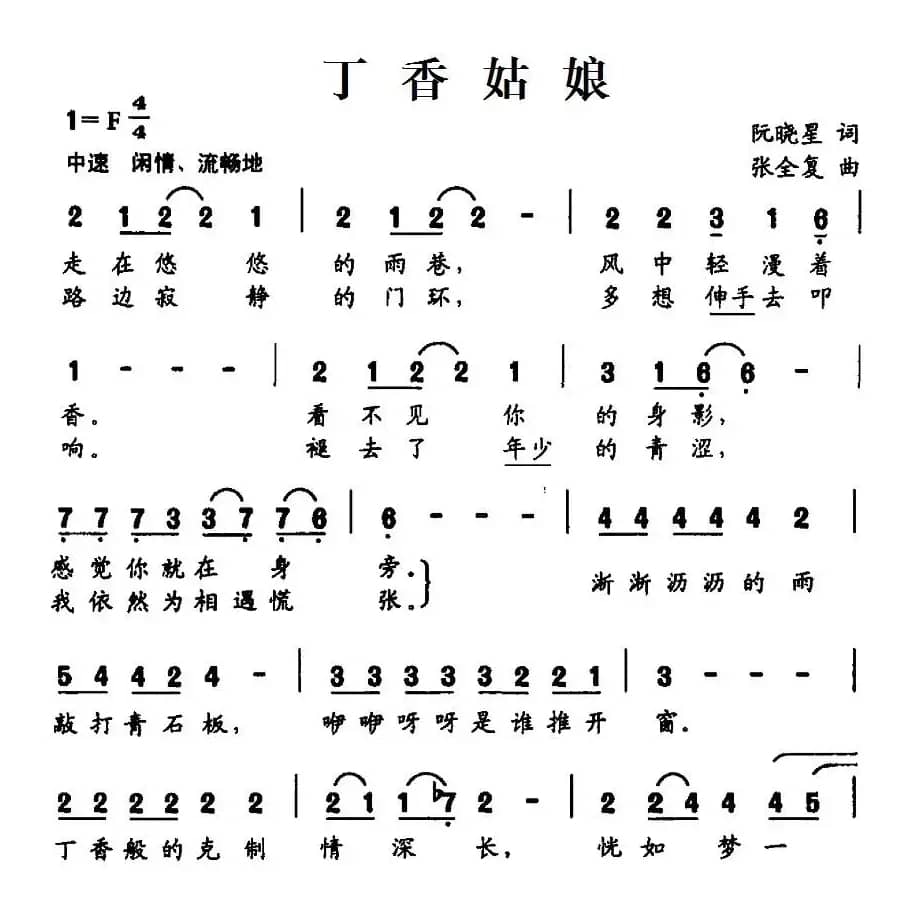 丁香姑娘
1=F 4/4
阮晓星 词
中速 闲情、流畅地
张全复 曲
2 1 2 2 1 | 2 1 2 2 - | 2 2 3 1 6 |
走在悠悠的雨巷, 风中轻漫着
路边寂静的门环, 多想伸手去叩
1 - - - | 2 1 2 2 1 | 3 1 6 6 - |
香。 看不见你的身影,
响。 褪去了年少的青涩,
7 7 7 3 3 7 7 6 | 6 - - - | 4 4 4 4 4 2 |
感觉你就在身旁。 淅淅沥沥的雨
我依然为相遇慌张。
5 4 4 2 4 - | 3 3 3 3 3 2 2 1 | 3 - - - |
敲打青石板, 咿咿呀呀是谁推开窗。
2 2 2 2 2 2 | 2 1 1 7 2 - | 2 2 4 4 4 5 |
丁香般的克制情深长, 恍如梦一